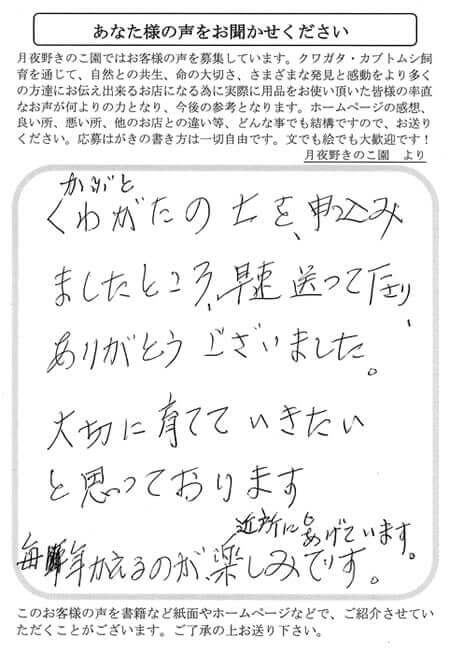 あなた様の声をお聞かせください
月夜野きのこ園ではお客様の声を募集しています。クワガタ・カブトムシ飼
育を通じて、自然との共生、命の大切さ、さまざまな発見と感動をより多く
の方達にお伝え出来るお店になる為に実際に用品をお使い頂いた皆様の率直
なお声が何よりの力となり、今後の参考となります。ホームページの感想、
良い所、悪い所、他のお店との違い等、どんな事でも結構ですので、お送り
ください。応募はがきの書き方は一切自由です。文でも絵でも大歓迎です！
月夜野きのこ園　より
かぶと
くわがたの土を、申込み
ましたところ、早速送って
ありがとうございました。
大切に育てていきたい
と思っております
近所にもあげています。
毎年かえるのが、楽しみです。
このお客様の声を書籍など紙面やホームページなどで、ご紹介させてい
ただくことがございます。ご了承の上お送り下さい。